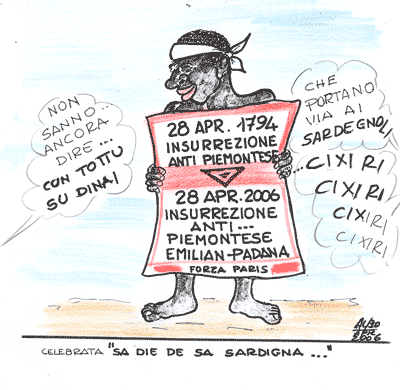 NON
SANNO...
ANCORA
DIRE...
CON TOTTU
SU DINAI
28 APR. 1794
INSURREZIONE
ANTI PIEMONTESE
28 APR. 2006
INSURREZIONE
ANTI...
PIEMONTESE
EMILIAN-PADANA
FORZA PARIS
CHE
PORTANO
VIA AI
SARDEGNOLI
...CIXIRI
CIXIRI
CIXIRI
CIXIRI
2006
CELEBRATA "SA DIE DE SA SARDIGNA..."